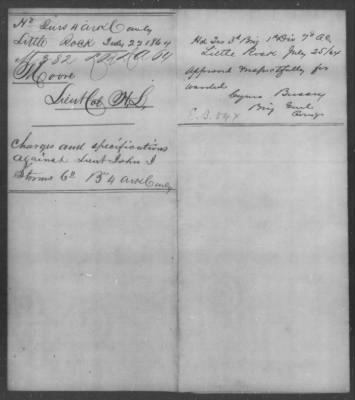 Hd Qurs 4 Ark Cavly
Little Rock July 27 1864
Moore
Lieut Col H. S.
Charges and specifications
against Lieut John J
Storms Co B 4 Ark Cavly
Hd Qrs 3d Brig 1st Div 7" AC
Little Rock July 25/64
Approved respectfully for
warded
Cyrus Bussey
Brig Genl